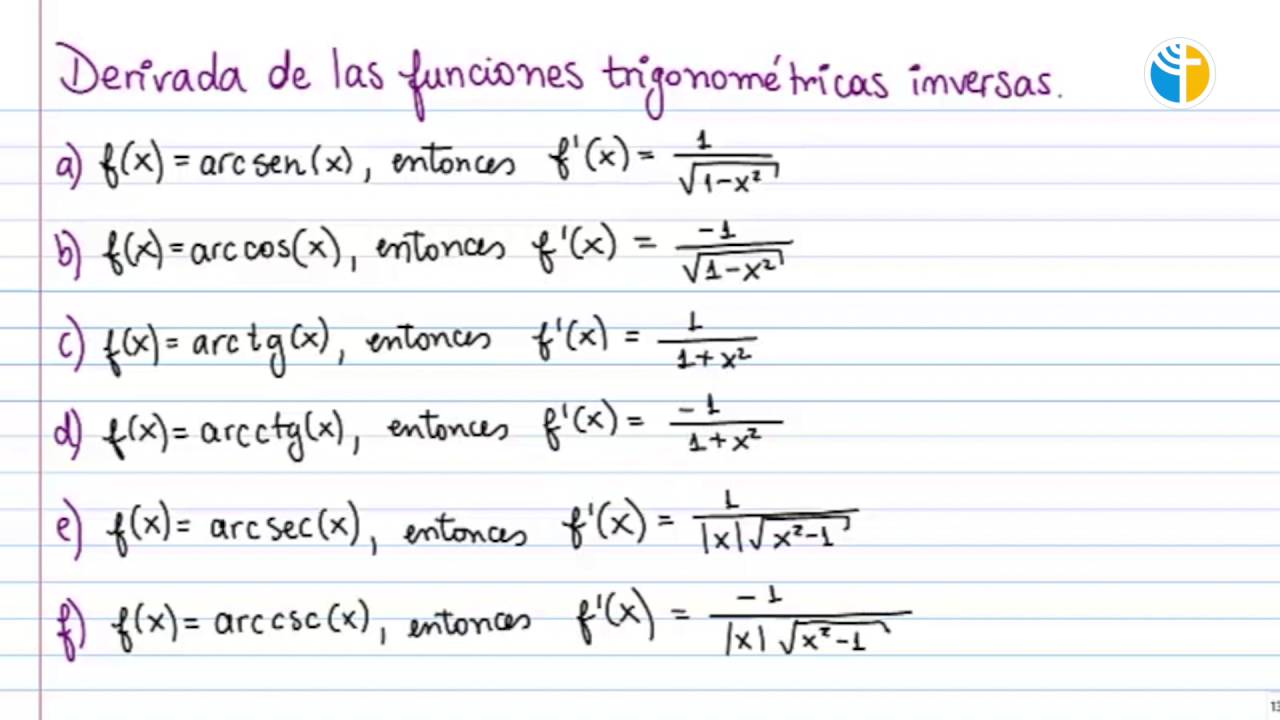 Derivada de las funciones trigonométricas inversas.
a) f(x) = arcsen(x), entonces f'(x) = 1/√(1-x²)
b) f(x) = arccos(x), entonces f'(x) = -1/√(1-x²)
c) f(x) = arctg(x), entonces f'(x) = 1/(1+x²)
d) f(x) = arcctg(x), entonces f'(x) = -1/(1+x²)
e) f(x) = arcsec(x), entonces f'(x) = 1/(|x|√(x²-1))
f) f(x) = arccsc(x), entonces f'(x) = -1/(|x|√(x²-1))
13